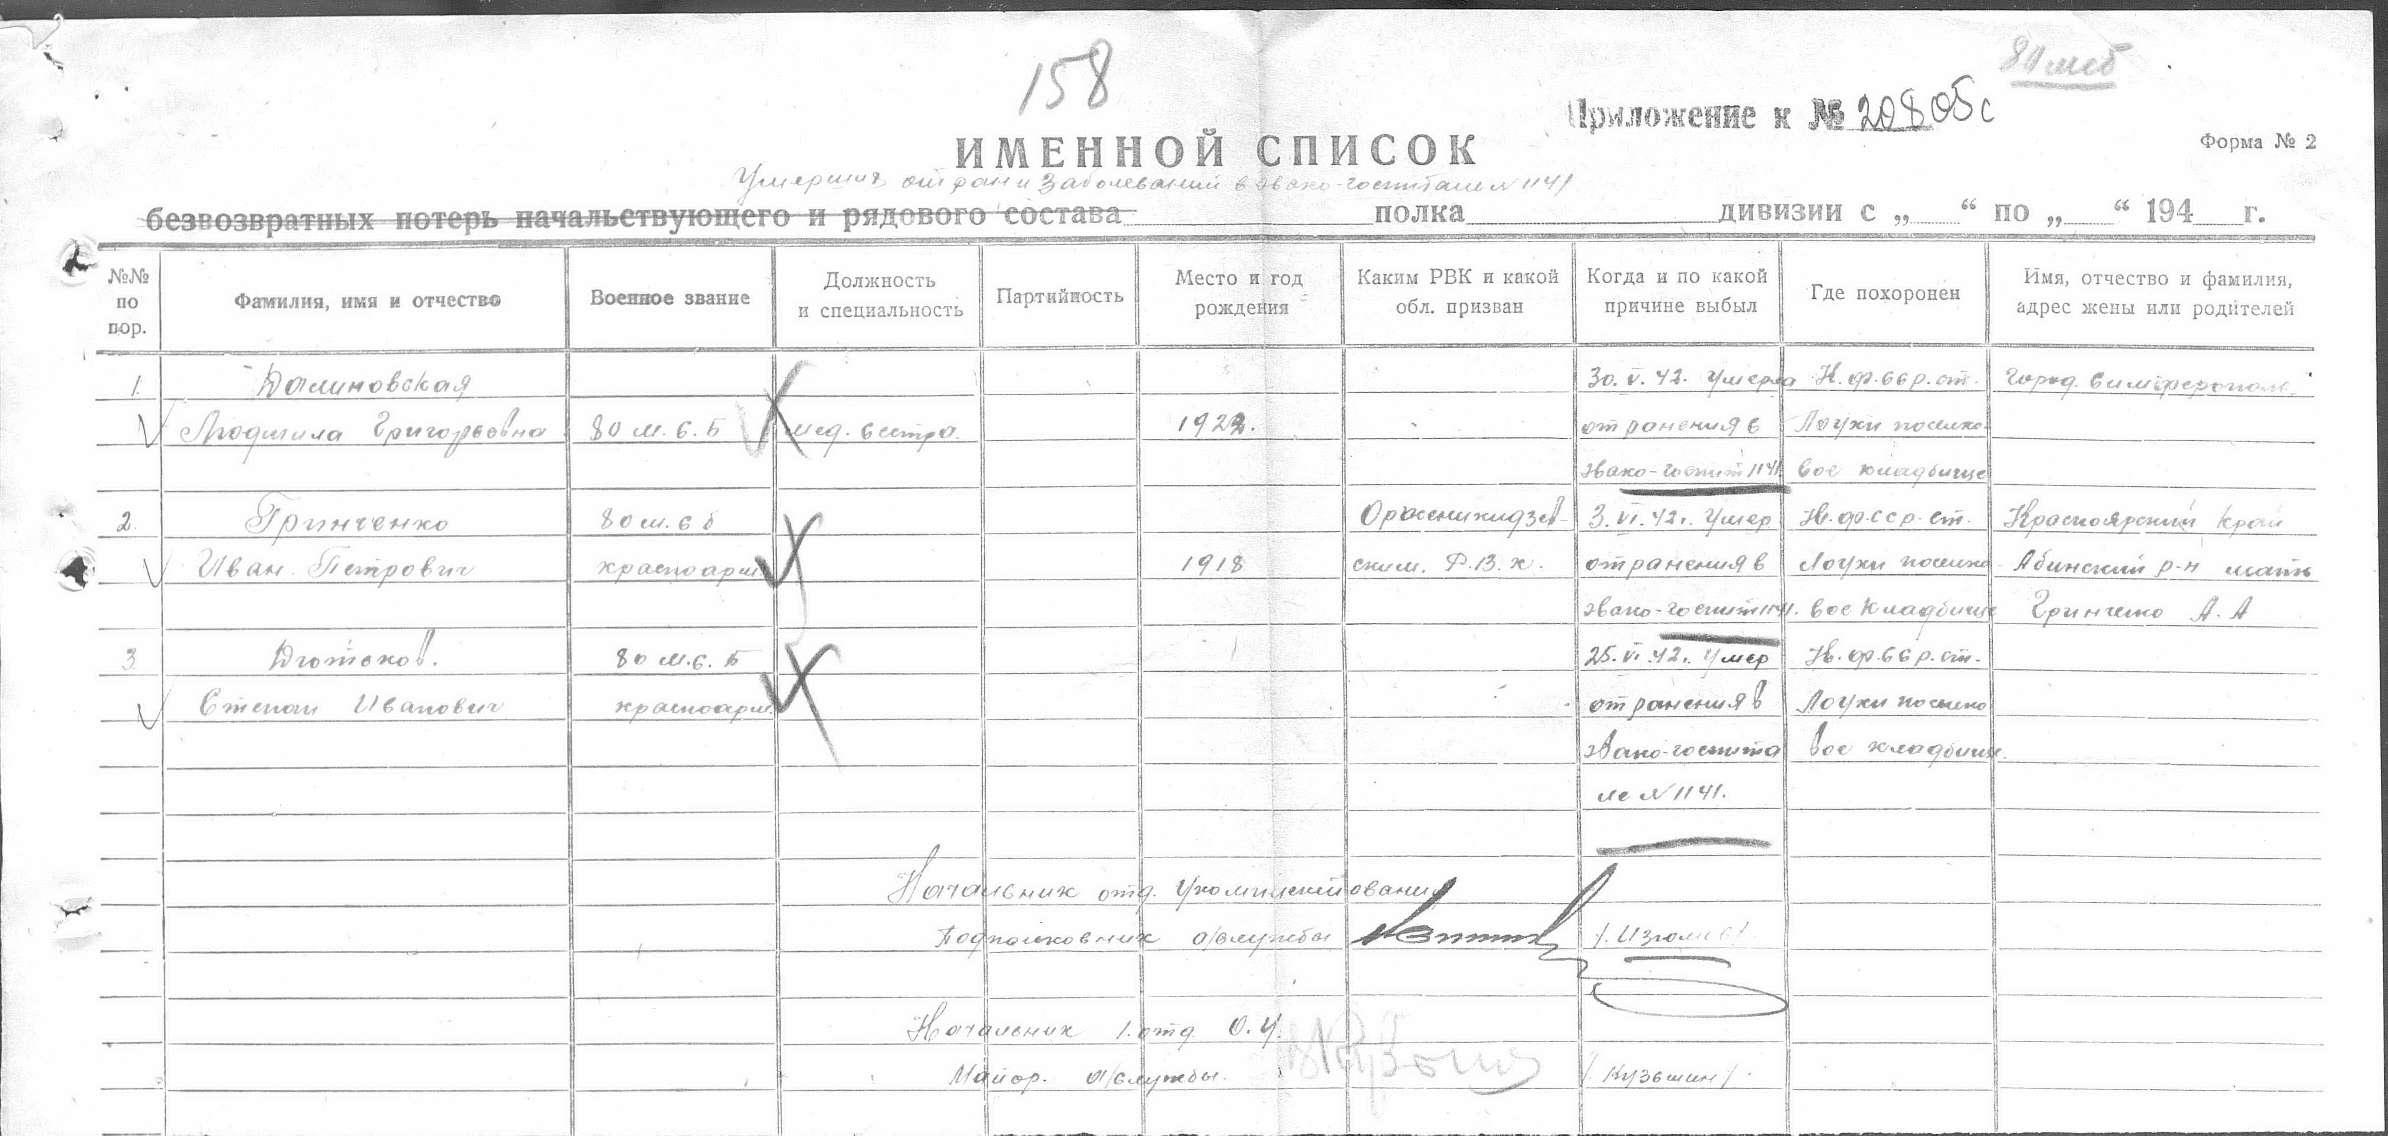 158
80 мсб
Приложение к № 20805с
ИМЕННОЙ СПИСОК
Форма № 2
Умерших от ран и заболеваний в эвако-госпитале N 1141
безвозвратных потерь начальствующего и рядового состава полка дивизии с „ “ по „ “ 194 г.
№№ по пор.
Фамилия, имя и отчество
Военное звание
Должность и специальность
Партийность
Место и год рождения
Каким РВК и какой обл. призван
Когда и по какой причине выбыл
Где похоронен
Имя, отчество и фамилия, адрес жены или родителей
1. 30.V.42. Умерла К.ф.сср. ст. город Симферополь
Людмила Григорьевна 80 м.с.б мед. сестра 1922. от ранения в Лоухи поселко-
эвако-госпит 1141 вое кладбище
2. Гринченко 80 м.с б Орженикидзев- 3.VI.42г. Умер К.ф.сср. ст. Красноярский край
Иван Петрович красноарм. 1918 ским Р.В.К. от ранения в Лоухи поселко- Абинский р-н мать
эвако-госпит 1141. вое кладбище Гринченко А.А
3 80 м.с.б 25.VI.42г. Умер К.ф.сср. ст.
Степан Иванович красноарм. от ранения в Лоухи поселко
эвако-госпита вое кладбище.
ле N 1141.
Начальник отд. укомплектования
Подполковник а/службы
Начальник 1. отд О.У.
Майор. а/службы. /Кузьмин/.